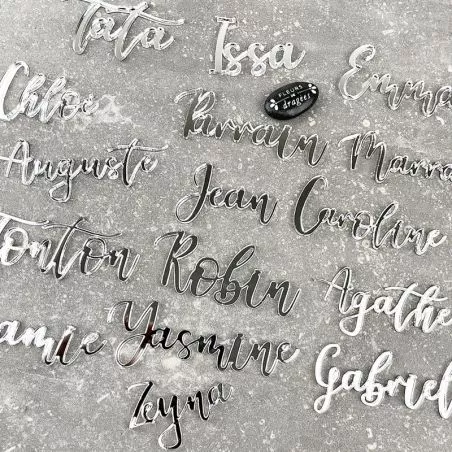 Tata
Issa
Emma
Chloé
FLEURS
DE
dragées
Parrain
Marra
Auguste
Jean
Caroline
Tonton
Robin
Agathe
amie
Yasmine
Gabriel
Zeyna